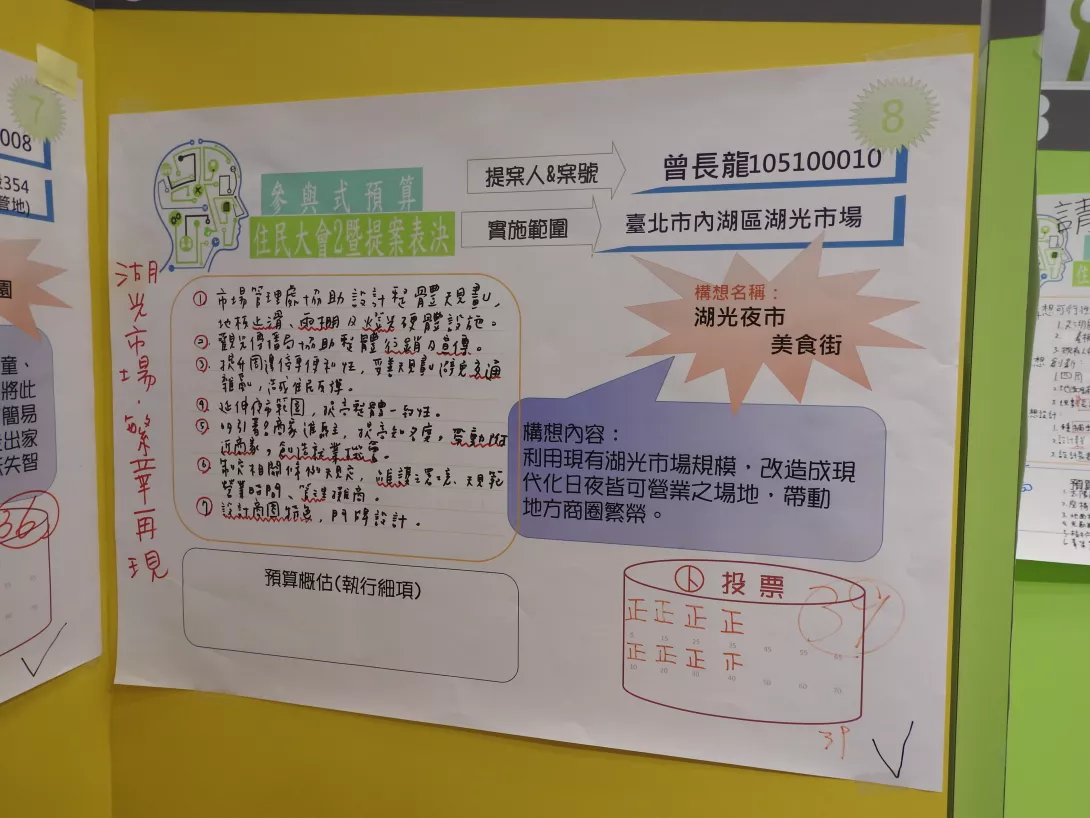 8
參與式預算
住民大會2暨提案表決
提案人&案號
曾長龍105100010
實施範圍
臺北市內湖區湖光市場
構想名稱：
湖光夜市
美食街
湖光市場．繁華再現
① 市場管理處協助設計整體規劃，
地板止滑、雨棚及燈光硬體設施。
② 觀光傳播局協助整體行銷及宣傳。
③ 提升周邊停車便利性，妥善規劃避免交通
雍塞，造成住民反彈。
④ 延伸夜市範圍，提高整體一致性。
⑤ 吸引著名商家進駐，提高知名度。帶動附
近商家，創造就業機會。
⑥ 制定相關條例規定，維護環境、規範
營業時間、管理攤商。
⑦ 設計商圈特色，門牌設計。
構想內容：
利用現有湖光市場規模，改造成現
代化日夜皆可營業之場地，帶動
地方商圈繁榮。
預算概估(執行細項)
投票
39
正 正 正 正
5 15 25 35 45 55 65
正 正 正
10 20 30 40 50 60 70
39
7
008
354
管地)
園
童、
將此
簡易
出家
失智
36